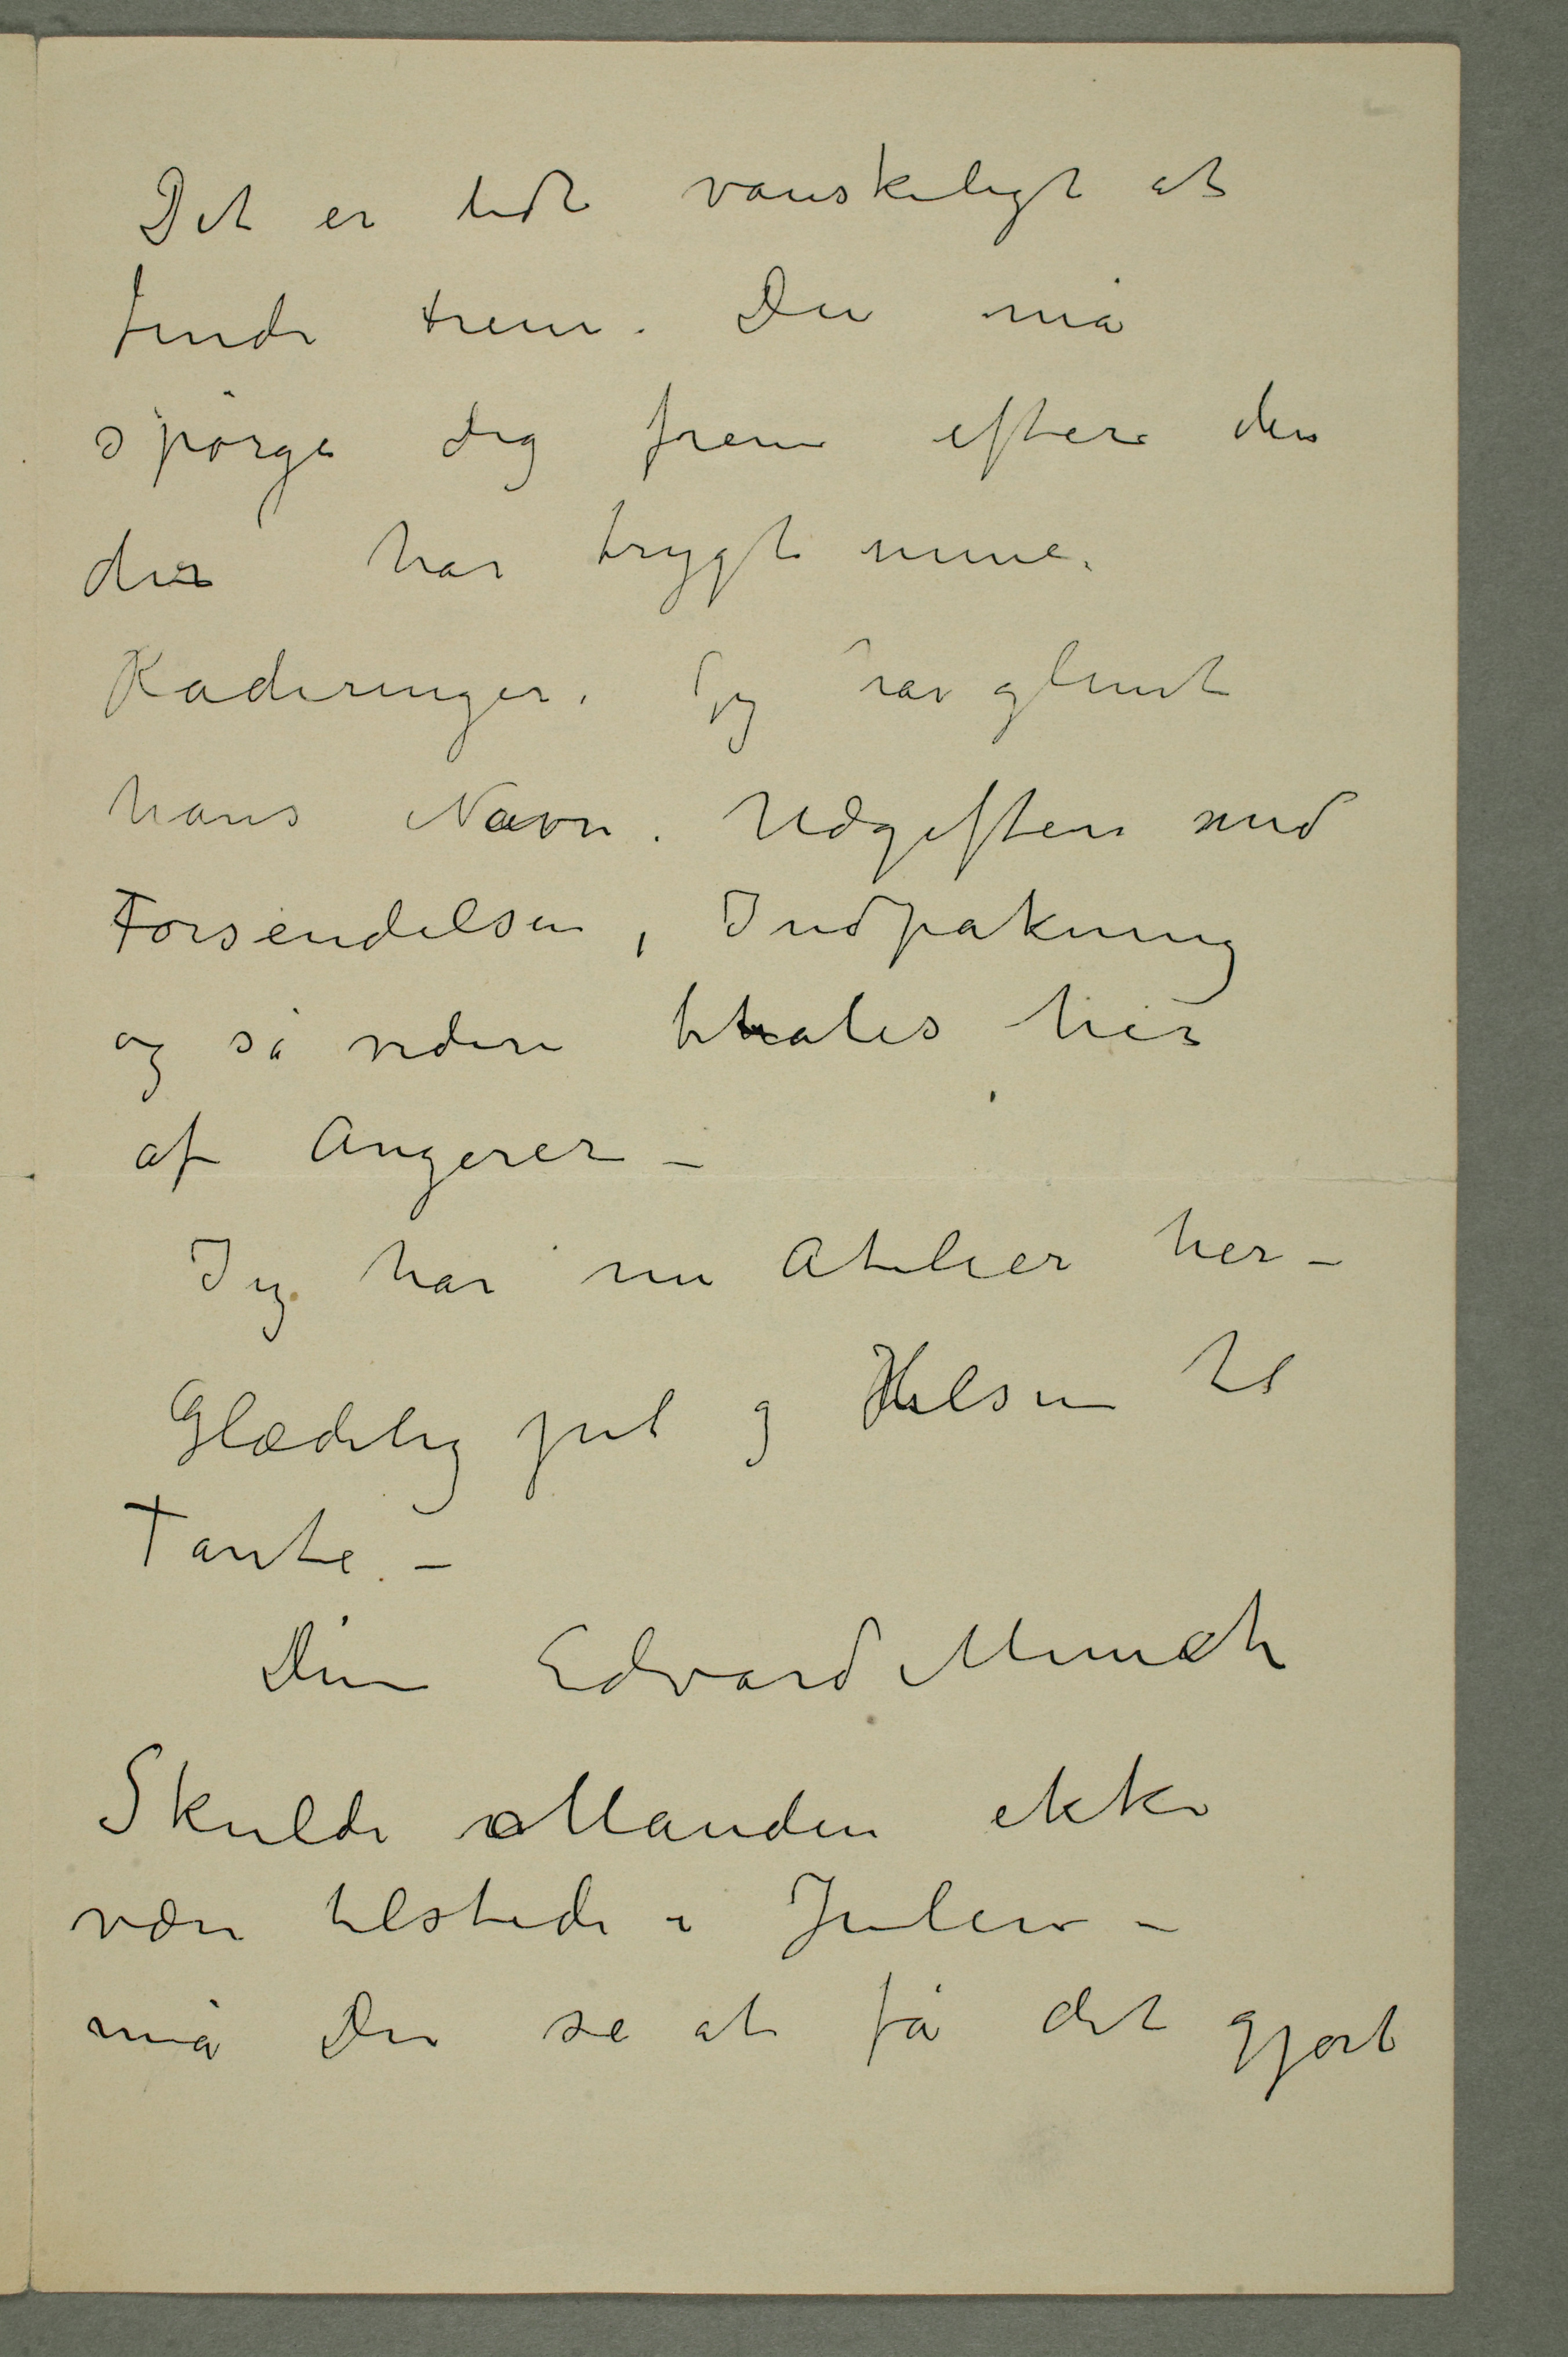 Det er lidt vanskeligt at
finde frem. Du må
spörge dig frem efter den
der har trygt mine
Raderinger. Jeg har glemt
hans Navn. Udgiften med
Forsendelsen, Indpakning
og så videre betales her
af Angerer –
Jeg har nu Atelier her –
Glædelig jul og Hilsen til
Tante. –
Din Edvard Munch
Skulde Manden ikke
være tilstede i Julen –
må Du se at få det gjort